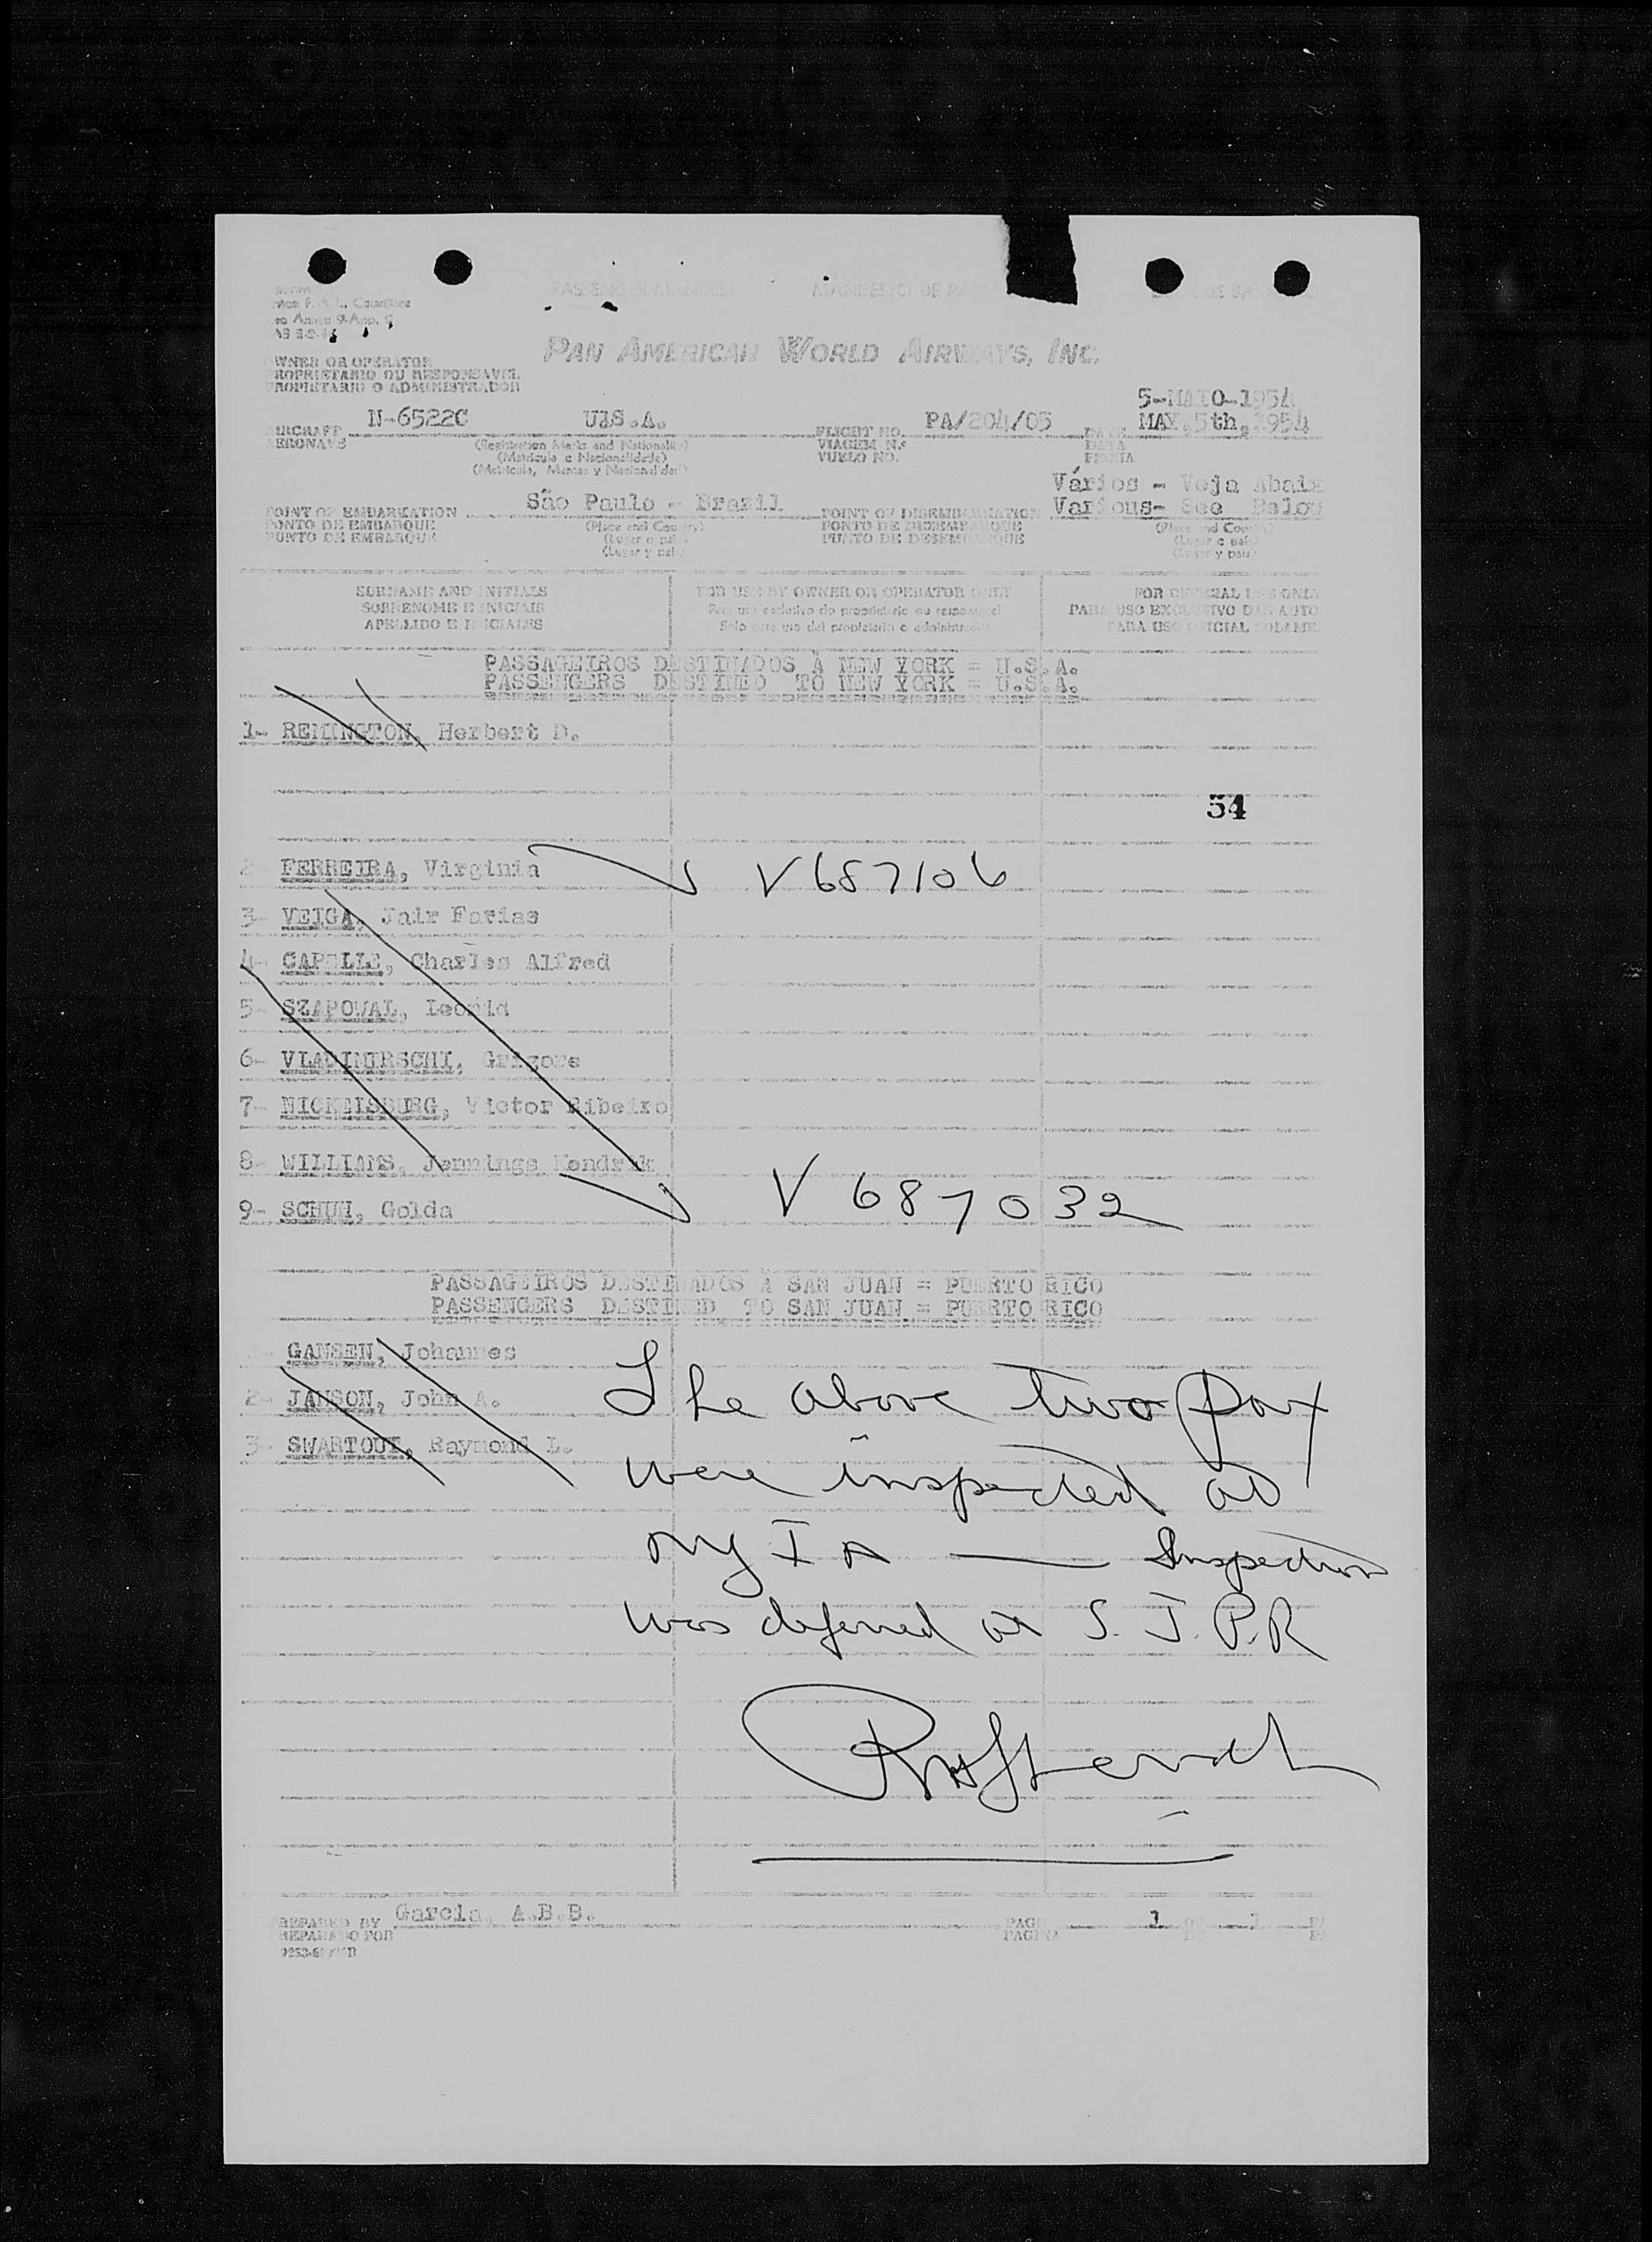 PASSENGER MANIFEST MANIFESTO DE
PAN AMERICAN WORLD AIRWAYS, INC.
OWNER OR OPERATOR
PROPRIETARIO OU RESPONSAVEL
PROPIETARIO O ADMINISTRADOR
5-MAIO-1954
AIRCRAFT N-6522C U.S.A. FLIGHT NO. PA/204/05 DATE MAY, 5th, 1954
AERONAVE (Registration Marks and Nationality) VIAGEM N.º DATA
(Matricula e Nacionalidade) VUELO NO. FECHA
(Matricula, Marcas y Nacionalidad)
Vários - Veja Abaix
POINT OF EMBARKATION São Paulo - Brazil POINT OF DISEMBARKATION Various- See Below
PONTO DE EMBARQUE (Place and Country) PONTO DE DESEMBARQUE (Place and Country)
PUNTO DE EMBARQUE (Lugar e pais) PUNTO DE DESEMBARQUE (Lugar e pais)
(Lugar y pais) (Lugar y pais)
SURNAME AND INITIALS FOR USE BY OWNER OR OPERATOR ONLY FOR OFFICIAL USE ONLY
SOBRENOME E INICIAIS Para uso exclusivo do proprietario ou responsavel PARA USO EXCLUSIVO DAS AUTO
APELLIDO E INICIALES Solo para uso del propietario o administrador PARA USO OFICIAL SOLAME
PASSAGEIROS DESTINADOS À NEW YORK = U.S.A.
PASSENGERS DESTINED TO NEW YORK = U.S.A.
1- REMINGTON, Herbert D.
54
2- FERREIRA, Virginia V 687106
3- VEIGA, Jair Farias
4- CAPELLE, Charles Alfred
5- SZAPOWAL, Leonid
6- VLADIMIRSCHI, Grigore
7- NICKELSBURG, Victor Ribeiro
8- WILLIAMS, Jennings Kendrik
9- SCHUM, Golda V 687032
PASSAGEIROS DESTINADOS À SAN JUAN = PUERTO RICO
PASSENGERS DESTINED TO SAN JUAN = PUERTO RICO
GANSEN, Johannes
2- JANSON, John A.
3- SWARTOUT, Raymond L.
The above two pax
were inspected at
NYIA — Inspection
was deferred at S. J. P.R
PREPARED BY Garcia, A.B.B. PAGE 1 OF 1
PREPARADO POR PAGINA DE